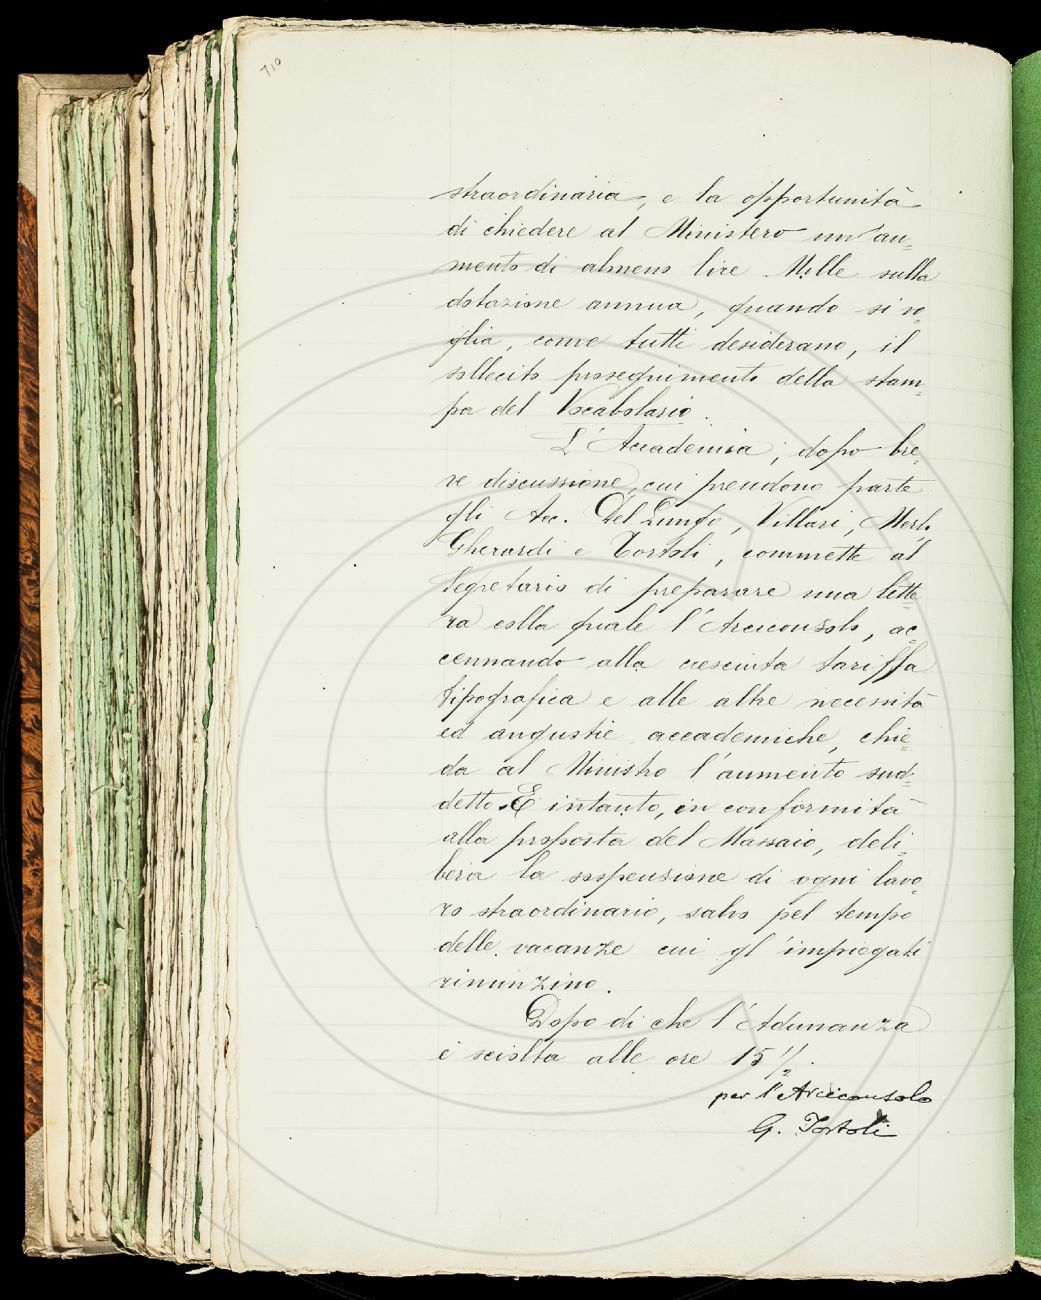 710
straordinaria, e la opportunità
di chiedere al Ministero un'au=
mento di almeno lire Mille sulla
dotazione annua, quando si vo=
glia, come tutti desiderano, il
sollecito proseguimento della stam=
pa del Vocabolario.
L'Accademia, dopo bre=
ve discussione, cui prendono parte
gli Acc. Del Lungo, Villari,
Gherardi e Tortoli, commette al
Segretario di preparare una lette=
ra colla quale l'Arciconsolo, ac=
cennando alla cresciuta tariffa
tipografica e alle altre necessità
ed angustie accademiche, chie=
da al Ministro l'aumento sud=
detto. E intanto, in conformità
alla proposta del Massaio, deli=
bera la sospensione di ogni lavo=
ro straordinario, salvo pel tempo
delle vacanze cui gl'impiegati
rinunzino.
Dopo di che l'Adunanza
è sciolta alle ore 15 1/2.
per l'Arciconsolo
G. Tortoli